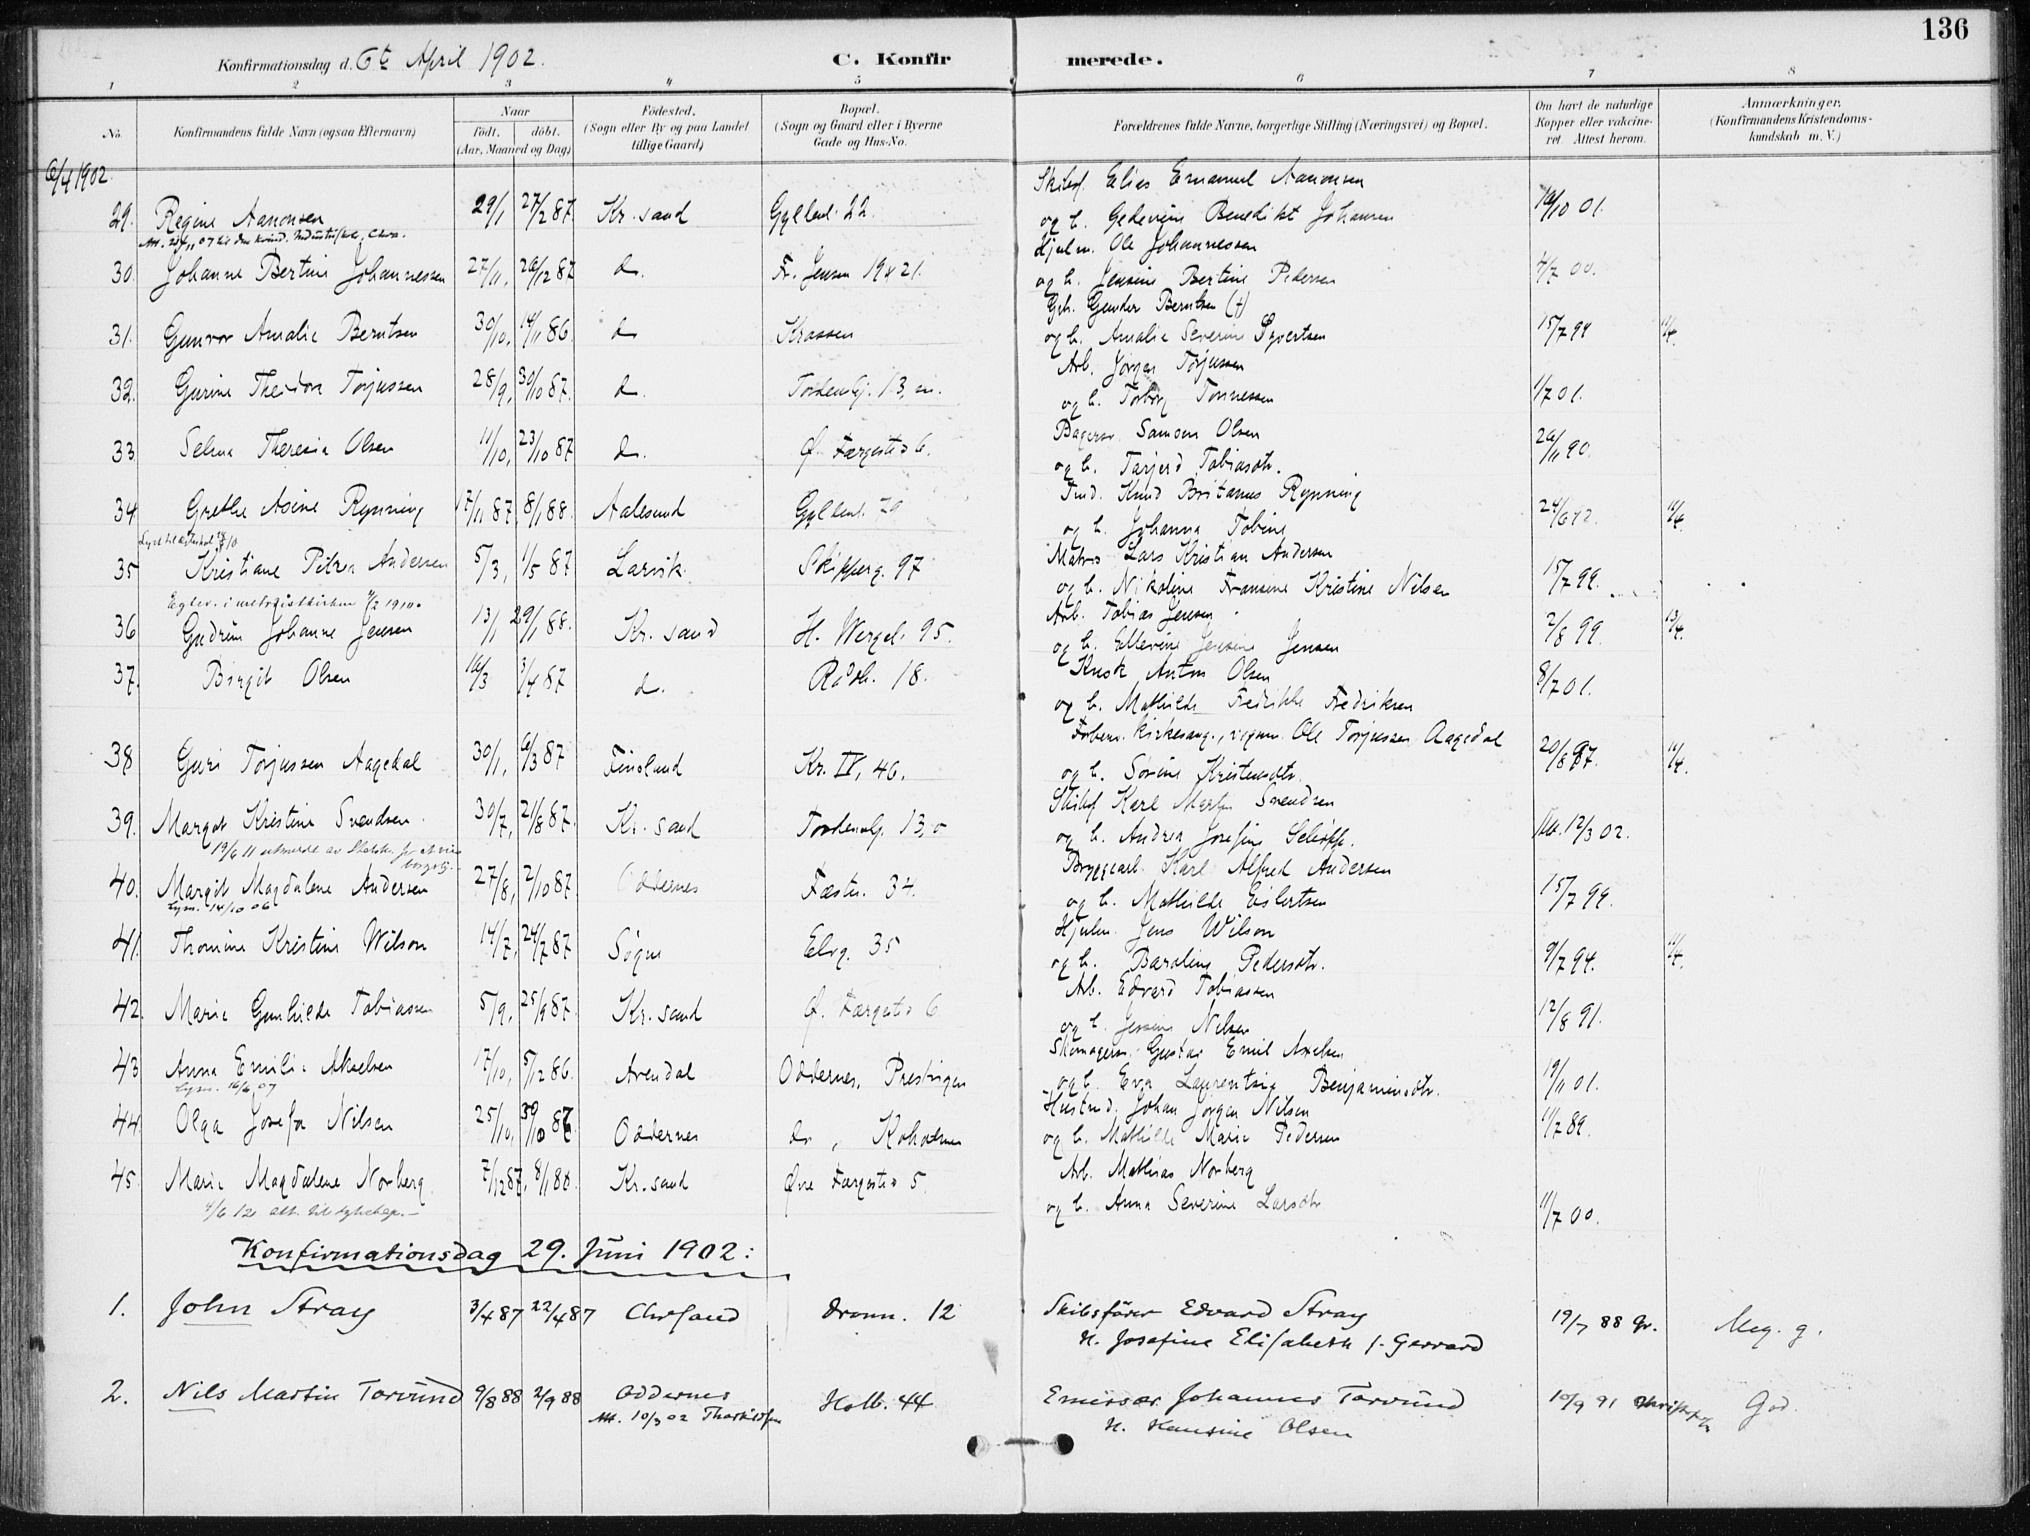 136
Konfirmationsdag d. 6te April 1902.
C. Konfirmerede.
1 2 3 4 5 6 7 8
No.
Konfirmandens fulde Navn (ogsaa Efternavn)
Naar
født. døbt.
(Aar, Maaned og Dag)
Fødested.
(Sogn eller By og paa Landet
tillige Gaard)
Bopæl.
(Sogn og Gaard eller i Byerne
Gade og Hus-No.
Forældrenes fulde Navne, borgerlige Stilling (Næringsvei) og Bopæl.
Om havt de naturlige
Kopper eller vakcine-
ret. Attest herom.
Anmærkninger.
(Konfirmandens Kristendoms-
kundskab m. V.)
6/4 1902
Elias Emanuel Aanonsen
29. Regine Aanonsen 29/1 27/2 87 Kr.sand Gyllenl. 22. og h. Gedevine Benedikt Johansen 19/10 01.
Hjulm. Ole Johannessen
30. Johanne Bertine Johannessen 27/11, 26/12 87 do. Fr. Jensen 19 & 21. og h. Jensine Bertine Pedersen 4/7 00.
Gunder Berntsen (†)
31. Gunvor Amalie Berntsen 30/10, 14/11 86. do Krossen og h. Amalie Severine Syvertsen 15/7 99 11/4.
Arb. Jørgen Torjussen
32. Gurine Theodora Torjussen 28/9, 30/10 87. do. 13, og h. Torborg Tønnessen 1/7 01.
Samson Olsen
33. Selma Theresia Olsen 11/10, 23/10 87 do. Ø. Færgested 6. og h. Tarjerd Tobiasdtr. 26/11 90.
Knud Britanus Rynning
34 Grethe Asine Rynning 17/11 87, 8/1 88. Aalesund Gyllenl. 79 og h. Johanna Tobine 12/4.
Matros Lars Kristian Andersen
35 Kristiane Petrea Andersen 5/3, 1/5 87 Larvik. Skipperg. 97 og h. Nikoline Fransine Kristine Nilsen 15/7 99.
Arb. Tobias Jensen
36 Gudrun Johanne Jensen 13/1 29/1 88. Kr.sand H. Wergel. 95. og h. Ellevine Jensine Jensen 2/8 99. 13/4.
Kusk Anton Olsen
37. Borgit Olsen 16/3 3/4 87 do. Raadh. 18. og h. Mathilde Fredrikke Fredriksen 8/7 01.
Kirkesang., Ole Torjussen Aagedal
38 Guri Torjussen Aagedal 30/1, 6/3 87 Finsland Kr. IV, 46. og h. Sørine Kristensdtr. 20/8 97. 11/4.
Karl Martin Svendsen
39. Margot Kristine Svendsen. 30/7, 21/8 87. Kr.sand Tordenskj. 13, og h. Andrea Josefine Att. 12/3 02.
Bryggearb. Karl Alfred Andersen
40. Margit Magdalene Andersen 27/8, 2/10 87. Oddernes Fæstn. 34. og h. Mathilde Eilertsen 15/7 99.
Lysn. 14/10 06
Hjulm. Jens Wilson
41. Thomine Kristine Wilson 14/7, 24/7 87 Søgne Elvg. 35 og h. Baroline Pedersdtr. 9/7 94. 11/4.
Arb. Edvard Tobiassen
42. Marie Gunhilde Tobiassen 5/9, 25/9 87. Kr.sand Ø. Færgested 6 og h. Jensine Nilsen 12/8 91.
Skomagerm. Gustav Emil Axelsen
43 Anna Emilie Axelsen 17/10, 5/12 86. Arendal Oddernes, Prestvigen og h. Eva Laurentsia Benjaminsdtr. 19/11 01.
Lysn. 16/6 07
Husmd. Johan Jørgen Nilsen
44. Olga Josefa Nilsen 25/10, 30/10 87 Oddernes do, Koholmen og h. Mathilde Marie Pedersen 11/7 89.
Arb. Mathias Norberg
45. Marie Magdalene Norberg 7/12 87, 8/1 88. Kr.sand Øvre Færgested 5. og h. Anna Severine Larsdtr 11/7 00.
Konfirmationsdag 29. Juni 1902:
1. John Stray 3/4 87 22/4 87 Chrsand Dronn. 12 Skibsfører Edvard Stray 19/7 88 Gr. Meg. g.
H. Josefine Elisabeth f. Gerrard
2. Nils Martin Torsund 9/8 88 2/9 88 Oddernes Holb. 44 Emissær Johannes Torsund 10/9 91 God.
Att. 10/3 02 Thorkildsen
H. Hansine Olsen